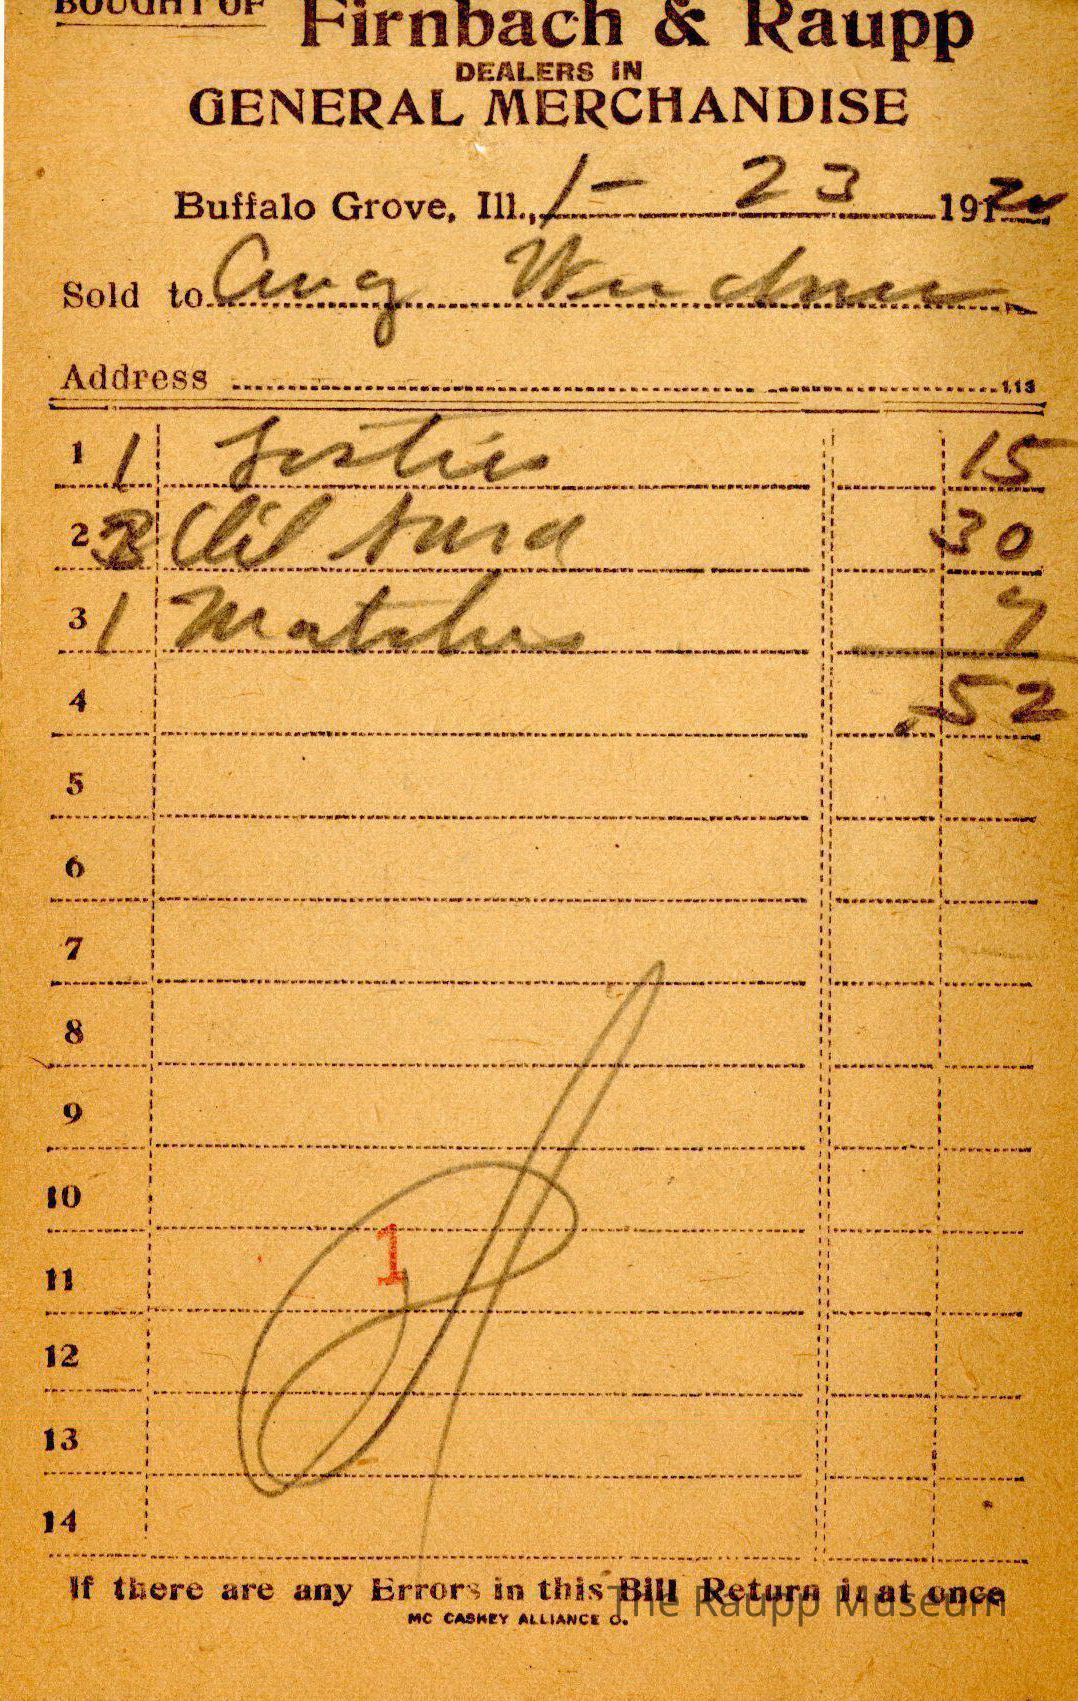 BOUGHT OF
Firnbach & Raupp
DEALERS IN
GENERAL MERCHANDISE
Buffalo Grove, Ill., 1- 23 1920
Sold to Aug
Address 113
1 1 15
2 3 30
3 1 Matches 7
4 .52
5
6
7
8
9
10
1
11
12
13
14
If there are any Errors in this Bill Return it at once
The Raupp Museum
MC CASKEY ALLIANCE O.